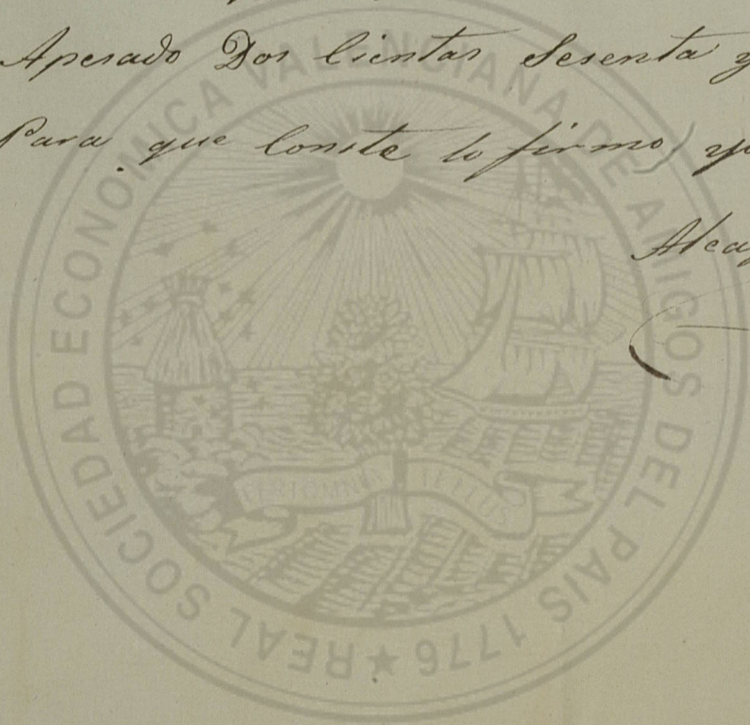 Apesado Dos Cientas Sesenta y
Para que Conste lo firmo, y
REAL SOCIEDAD ECONOMICA VALENCIANA DE AMIGOS DEL PAIS 1776 ★